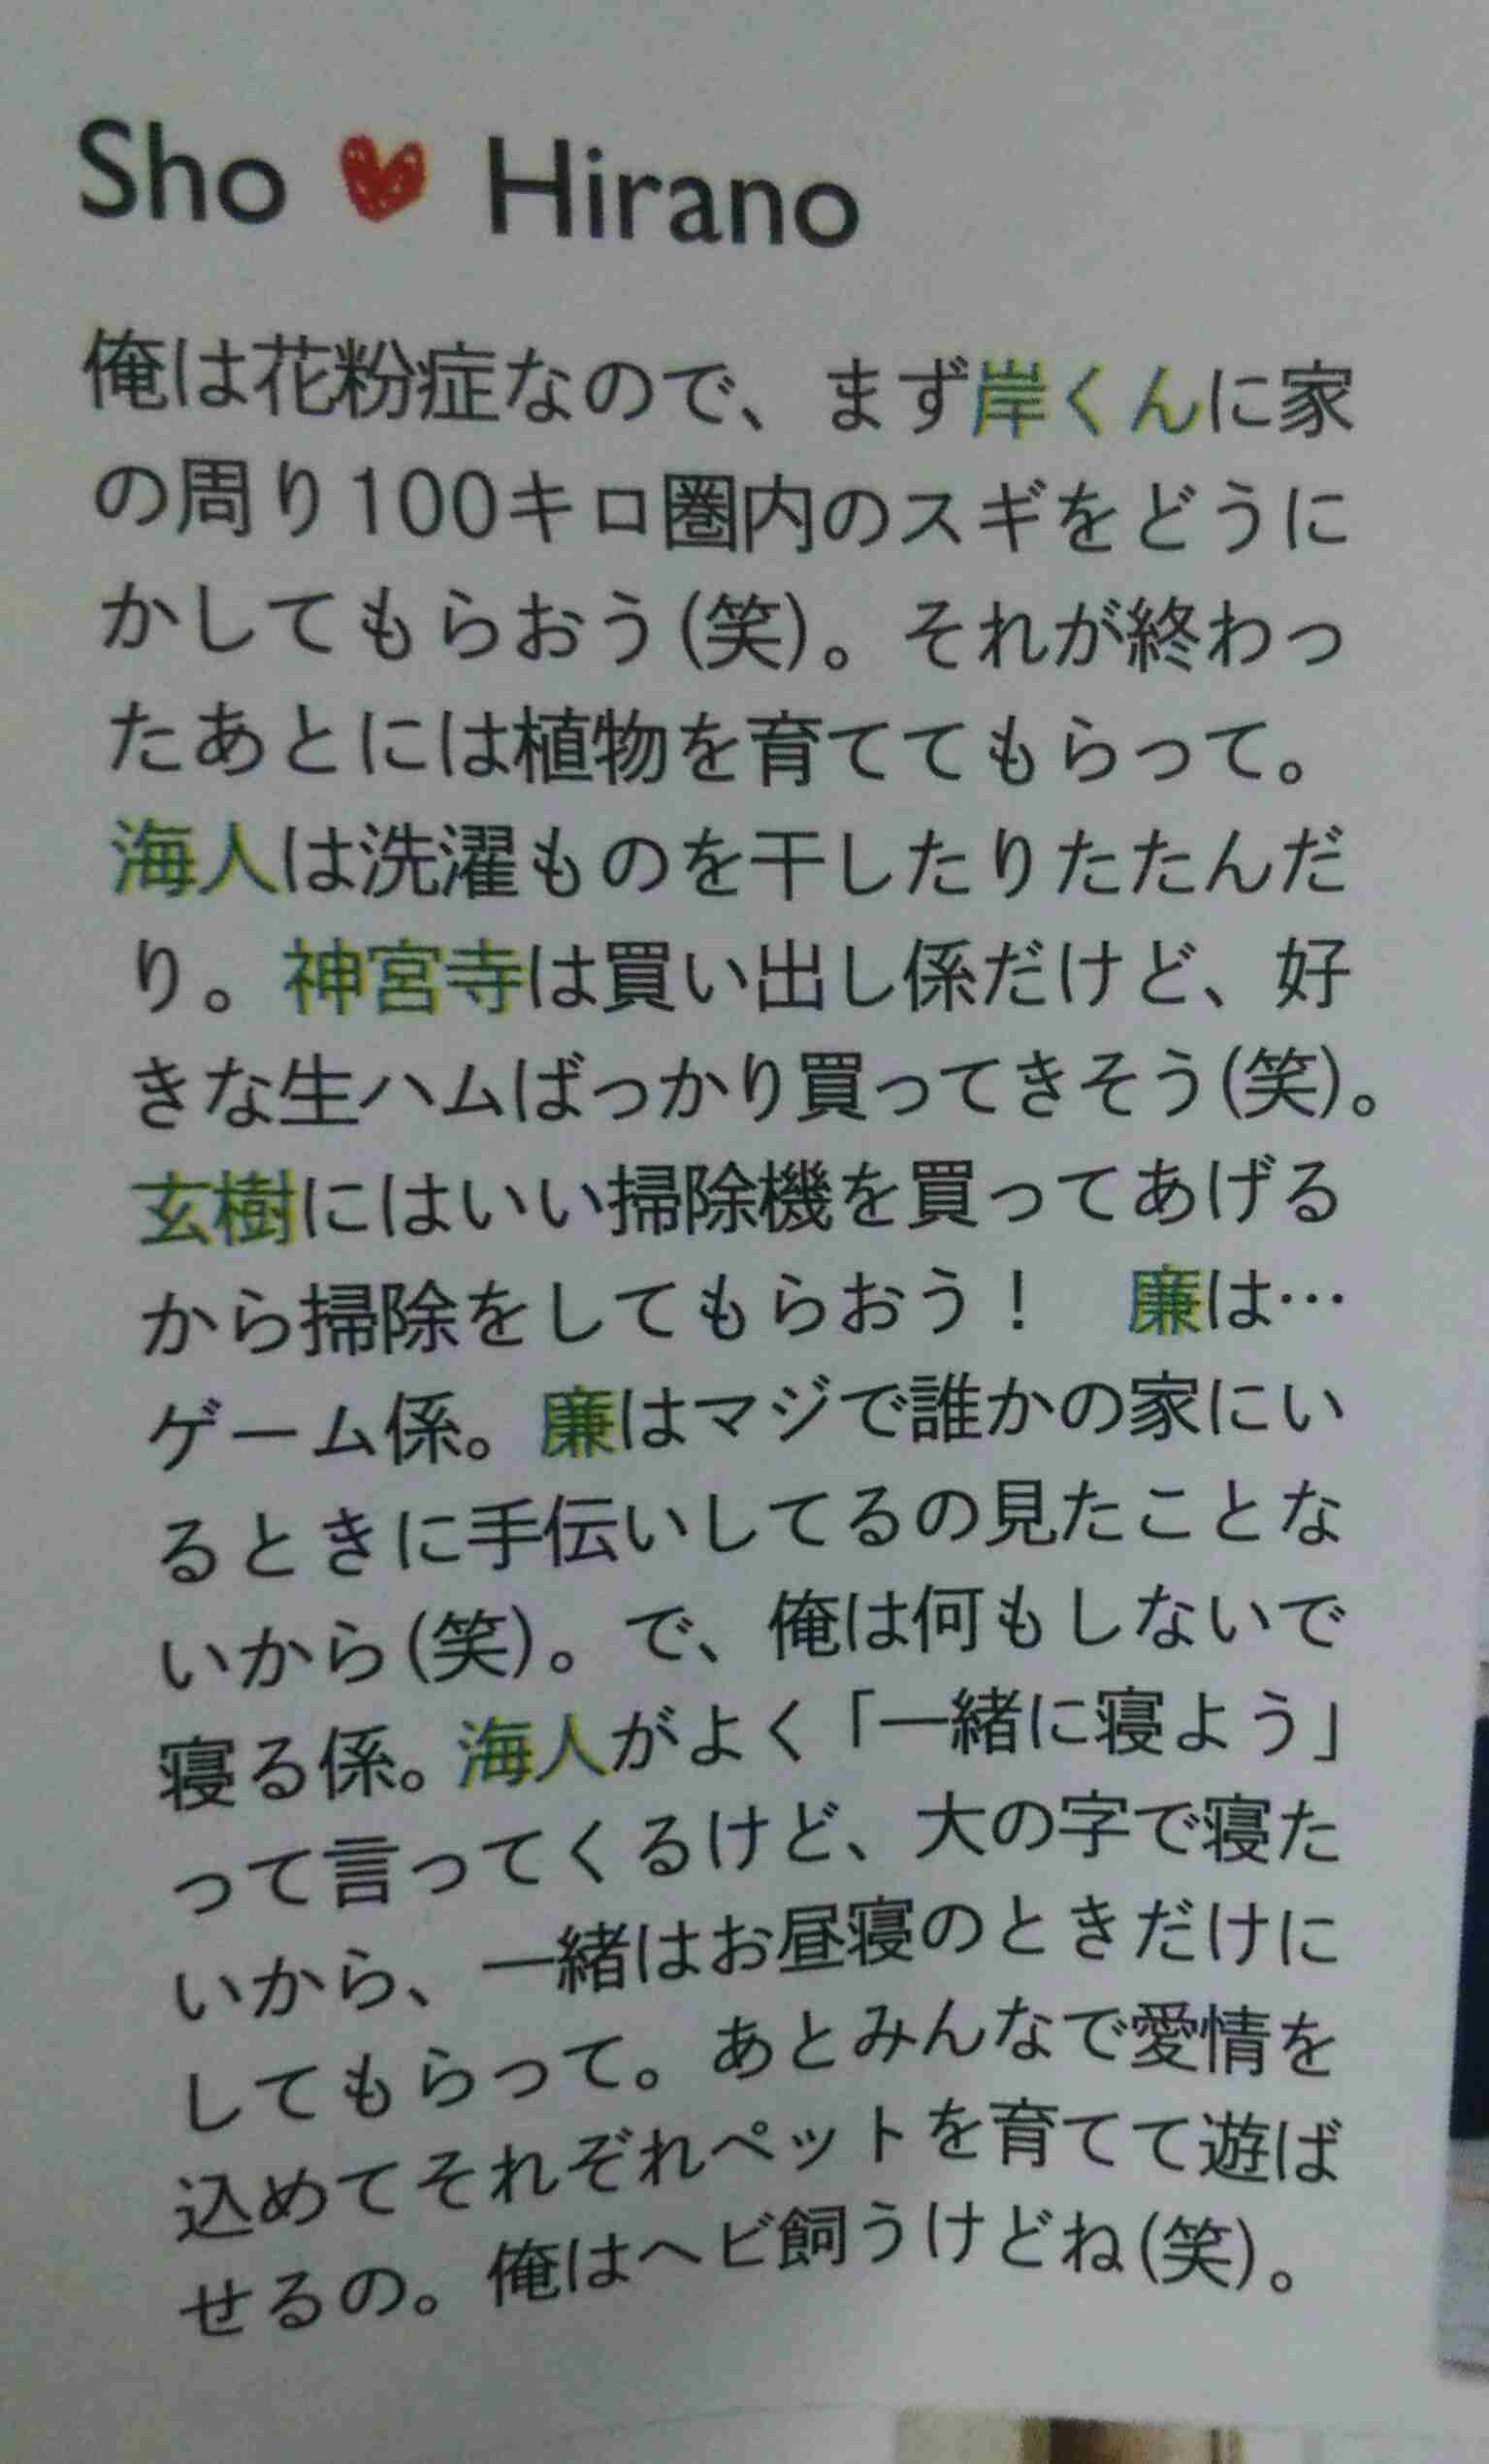 Sho ♥ Hirano
俺は花粉症なので、まず岸くんに家
の周り100キロ圏内のスギをどうに
かしてもらおう(笑)。それが終わっ
たあとには植物を育ててもらって。
海人は洗濯ものを干したりたたんだ
り。神宮寺は買い出し係だけど、好
きな生ハムばっかり買ってきそう(笑)。
玄樹にはいい掃除機を買ってあげる
から掃除をしてもらおう！　廉は…
ゲーム係。廉はマジで誰かの家にい
るときに手伝いしてるの見たことな
いから(笑)。で、俺は何もしないで
寝る係。海人がよく「一緒に寝よう」
って言ってくるけど、大の字で寝た
いから、一緒はお昼寝のときだけに
してもらって。あとみんなで愛情を
込めてそれぞれペットを育てて遊ば
せるの。俺はヘビ飼うけどね(笑)。